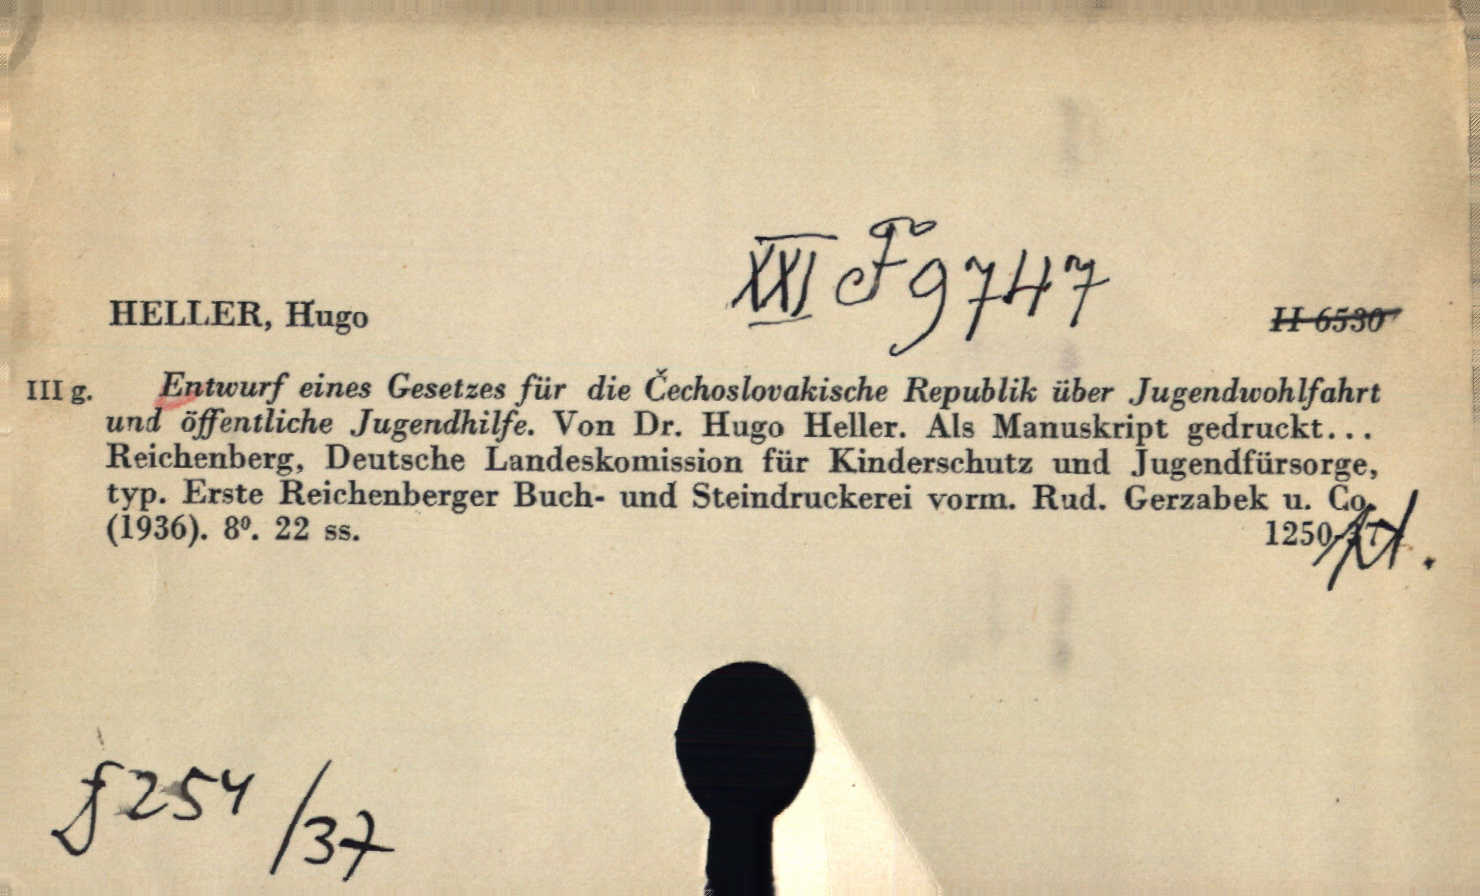 XXI F 9747
HELLER, Hugo
H 6530
III g. Entwurf eines Gesetzes für die Čechoslovakische Republik über Jugendwohlfahrt
und öffentliche Jugendhilfe. Von Dr. Hugo Heller. Als Manuskript gedruckt...
Reichenberg, Deutsche Landeskomission für Kinderschutz und Jugendfürsorge,
typ. Erste Reichenberger Buch- und Steindruckerei vorm. Rud. Gerzabek u. Co.
(1936). 8⁰. 22 ss.
1250-37
f 254/37